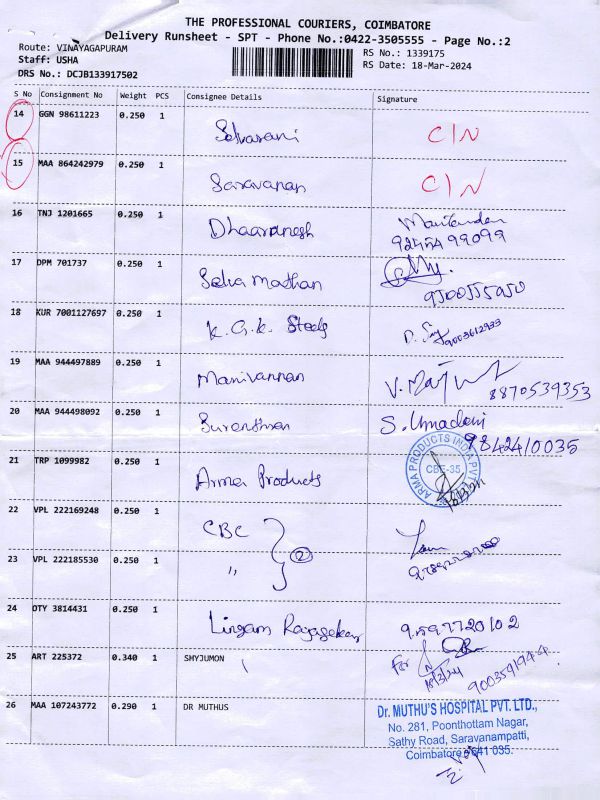 THE PROFESSIONAL COURIERS, COIMBATORE
Delivery Runsheet - SPT - Phone No.:0422-3505555 - Page No.:2
Route: VINAYAGAPURAM
Staff: USHA
DRS No.: DCJB133917502
RS No.: 1339175
RS Date: 18-Mar-2024
S No Consignment No Weight PCS Consignee Details Signature
14 GGN 98611223 0.250 1 Selvarani C/N
15 MAA 864242979 0.250 1 Saravanan C/N
16 TNJ 1201665 0.250 1 Dhaaranesh
17 DPM 701737 0.250 1 Selva mathan
18 KUR 7001127697 0.250 1 K.G.K. Steels
9003612933
19 MAA 944497889 0.250 1 Manivannan V.
8870539353
20 MAA 944498092 0.250 1 Surenthran S. Umadevi
9842410035
21 TRP 1099982 0.250 1 Arma Products
ARMA PRODUCTS INDIA PVT
CBE-35
22 VPL 222169248 0.250 1 CBC
23 VPL 222185530 0.250 1 " 2
24 OTY 3814431 0.250 1 Lingam Rajasekar 9597720102
25 ART 225372 0.340 1 SHYJUMON For
18/3/24
26 MAA 107243772 0.290 1 DR MUTHUS
Dr. MUTHU'S HOSPITAL PVT. LTD.,
No. 281, Poonthottam Nagar,
Sathy Road, Saravanampatti,
Coimbatore - 641 035.